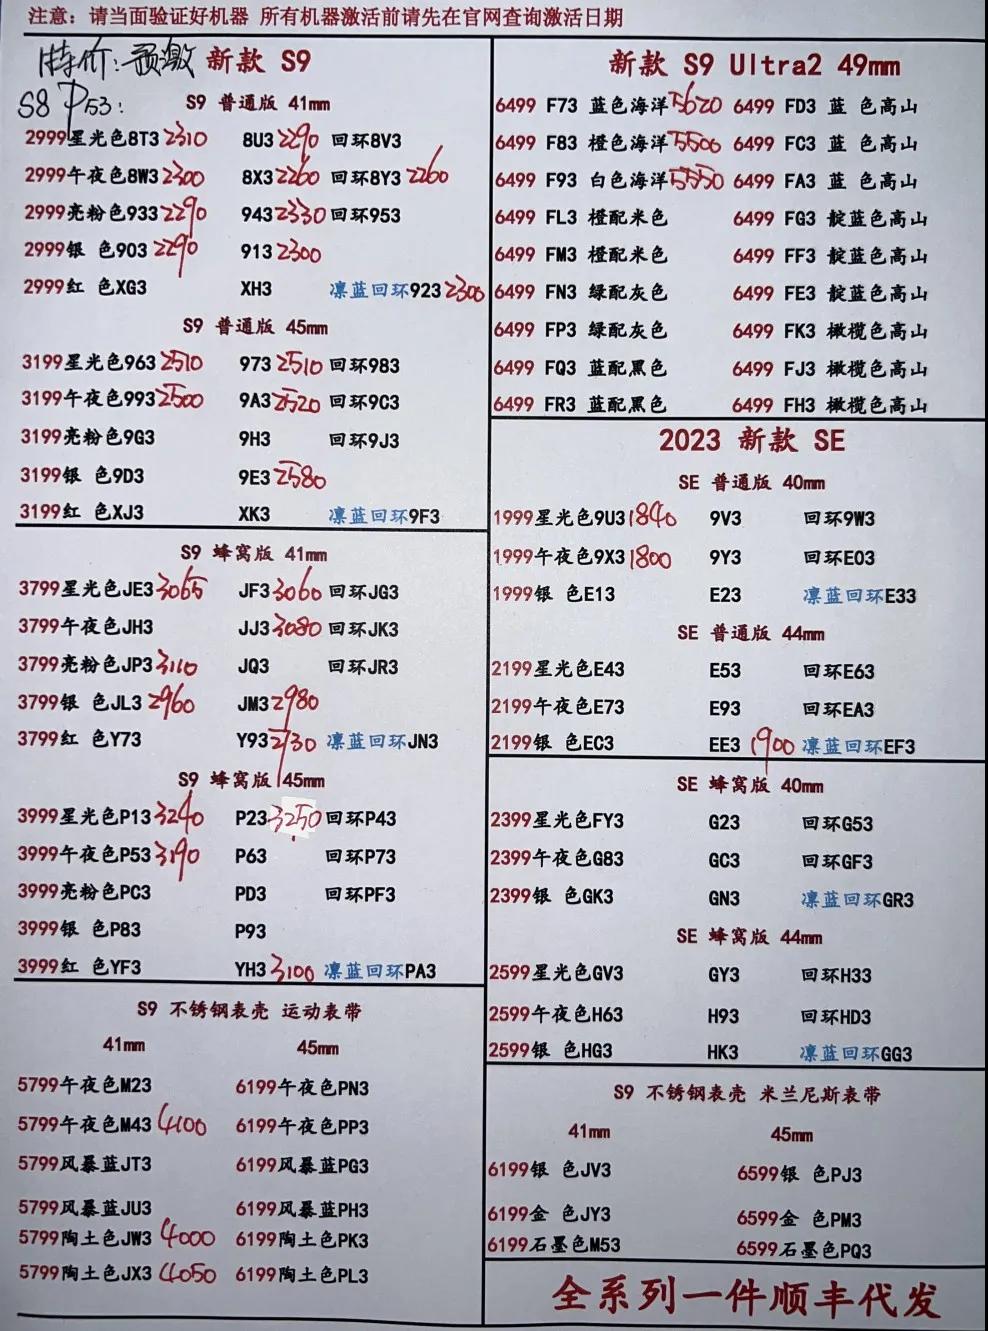 注意：请当面验证好机器 所有机器激活前请先在官网查询激活日期
特价：预激 新款 S9
S8 P53：
S9 普通版 41mm
2999星光色8T3 2310 8U3 2290 回环8V3
2999午夜色8W3 2300 8X3 2260 回环8Y3 2260
2999亮粉色933 2290 943 2330 回环953
2999银 色903 2290 913 2300
2999红 色XG3 XH3 凛蓝回环923 2300
S9 普通版 45mm
3199星光色963 2510 973 2510 回环983
3199午夜色993 2500 9A3 2520 回环9C3
3199亮粉色9G3 9H3 回环9J3
3199银 色9D3 9E3 2580
3199红 色XJ3 XK3 凛蓝回环9F3
S9 蜂窝版 41mm
3799星光色JE3 3065 JF3 3060 回环JG3
3799午夜色JH3 JJ3 3080 回环JK3
3799亮粉色JP3 3110 JQ3 回环JR3
3799银 色JL3 2960 JM3 2980
3799红 色Y73 Y93 2730 凛蓝回环JN3
S9 蜂窝版 45mm
3999星光色P13 3240 P23 3250 回环P43
3999午夜色P53 3190 P63 回环P73
3999亮粉色PC3 PD3 回环PF3
3999银 色P83 P93
3999红 色YF3 YH3 3100 凛蓝回环PA3
S9 不锈钢表壳 运动表带
41mm 45mm
5799午夜色M23 6199午夜色PN3
5799午夜色M43 4100 6199午夜色PP3
5799风暴蓝JT3 6199风暴蓝PG3
5799风暴蓝JU3 6199风暴蓝PH3
5799陶土色JW3 4000 6199陶土色PK3
5799陶土色JX3 4050 6199陶土色PL3
新款 S9 Ultra2 49mm
6499 F73 蓝色海洋 5620 6499 FD3 蓝 色高山
6499 F83 橙色海洋 5500 6499 FC3 蓝 色高山
6499 F93 白色海洋 5550 6499 FA3 蓝 色高山
6499 FL3 橙配米色 6499 FG3 靛蓝色高山
6499 FM3 橙配米色 6499 FF3 靛蓝色高山
6499 FN3 绿配灰色 6499 FE3 靛蓝色高山
6499 FP3 绿配灰色 6499 FK3 橄榄色高山
6499 FQ3 蓝配黑色 6499 FJ3 橄榄色高山
6499 FR3 蓝配黑色 6499 FH3 橄榄色高山
2023 新款 SE
SE 普通版 40mm
1999星光色9U3 1840 9V3 回环9W3
1999午夜色9X3 1800 9Y3 回环E03
1999银 色E13 E23 凛蓝回环E33
SE 普通版 44mm
2199星光色E43 E53 回环E63
2199午夜色E73 E93 回环EA3
2199银 色EC3 EE3 1900 凛蓝回环EF3
SE 蜂窝版 40mm
2399星光色FY3 G23 回环G53
2399午夜色G83 GC3 回环GF3
2399银 色GK3 GN3 凛蓝回环GR3
SE 蜂窝版 44mm
2599星光色GV3 GY3 回环H33
2599午夜色H63 H93 回环HD3
2599银 色HG3 HK3 凛蓝回环GG3
S9 不锈钢表壳 米兰尼斯表带
41mm 45mm
6199银 色JV3 6599银 色PJ3
6199金 色JY3 6599金 色PM3
6199石墨色M53 6599石墨色PQ3
全系列一件顺丰代发